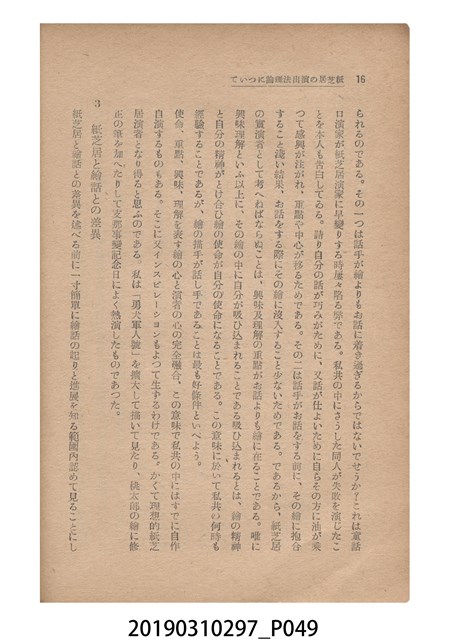 紙芝居の演出法理論について 16
られるのである。その一つは話手が繪よりもお話に着き過ぎるからではないでせうか?これは童話
口演家が紙芝居演家に早變りする時屢々陷る弊である。私共の中にさうした同人が失敗を演じたこ
とを本人も告白してゐる。詰り自分の話が巧みがために、又話が仕よいために自らその方に油が乘
つて感興が注がれ、重點や中心が移るためである。その二は話手がお話をする前に、その繪に抱合
すること淺い結果、お話をする際にその繪に沒入すること少ないためである。であるから、紙芝居
の實演者として考へねばならぬことは、興味及理解の重點がお話よりも繪に在ることである。唯に
興味理解といふ以上に、その繪の中に自分が吸ひ込まれることである吸ひ込まれるとは、繪の精神
と自分の精神がとけ合ひ繪の使命が自分の使命になることである。この意味に於いて私共の何時も
經驗することであるが、繪の描手が話し手であることは最も好條件といへよう。
使命、重點、興味、理解を表す繪の心と演者の心の完全融合、この意味で私共の中にはすでに自作
自演するものもある。そこに又インスピレーションもよつて生ずるわけである。かくて理想的紙芝
居演者となり得ると思ふのである。私は「勇犬軍人號」を擴大して描いて見たり、桃太郎の繪に修
正の筆を加へたりして支那事變記念日によく熱演したものであつた。
3 紙芝居と繪話との差異
紙芝居と繪話との差異を述べる前に一寸簡單に繪話の起りと發展を知る範圍內認めて見ることにし
20190310297_P049